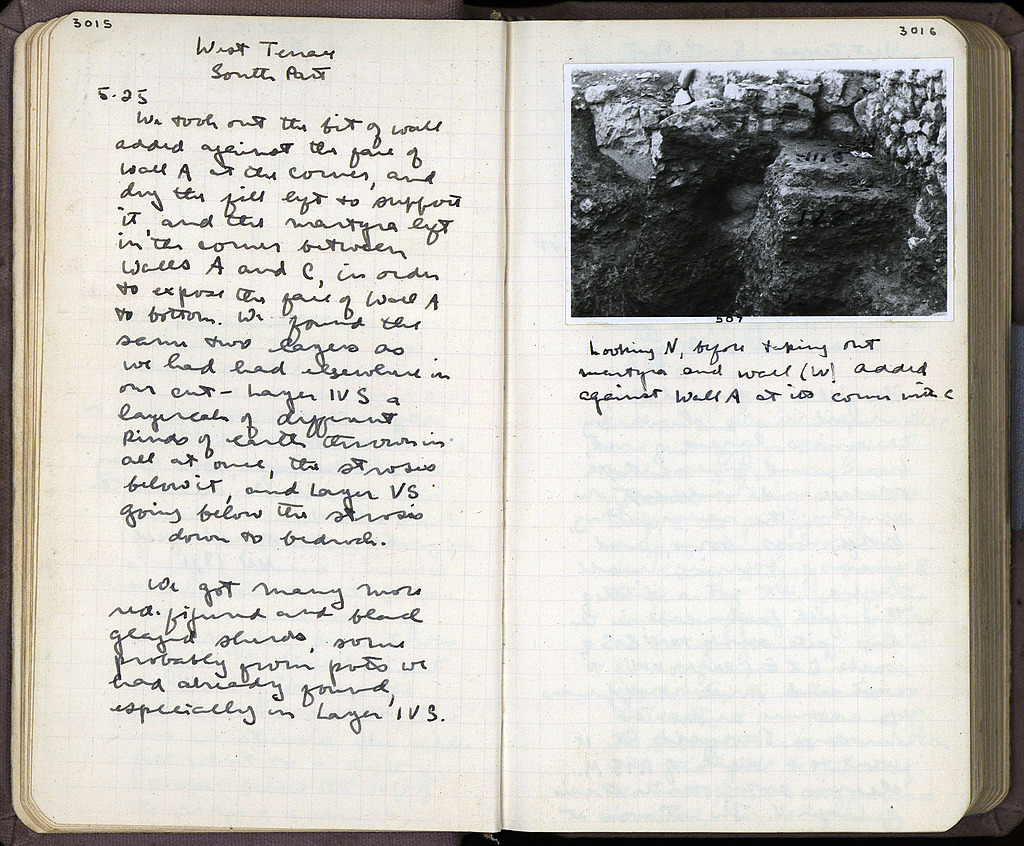 3015
West Terrace
South Part
5-25
We took out the bit of wall
added against the face of
Wall A at the corner, and
dug the fill left to support
it, and the martyra left
in the corner between
Walls A and C, in order
to expose the face of Wall A
to bottom. We found the
same two layers as
we had had elsewhere in
our cut - Layer IVS a
layer of different
kinds of earth thrown in
all at once, the strosis
below it, and Layer VS
going below the strosis
down to bedrock.
We got many more
red-figured and black
glazed sherds, some
probably from pots we
had already found,
especially in Layer IVS.
3016
W
507
Looking N, before taking out
martyra and wall (W) added
against Wall A at its corner with C